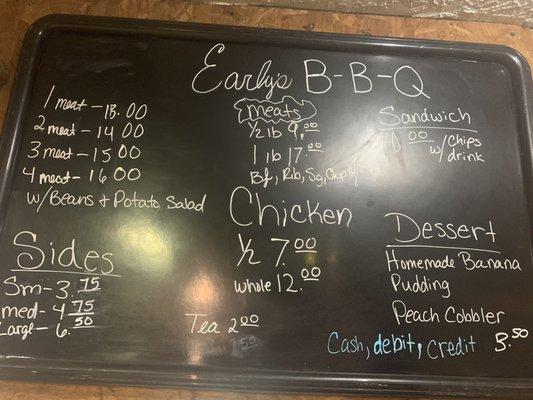 Early's B-B-Q
1 meat - 13.00
2 meat - 14.00
3 meat - 15.00
4 meat - 16.00
w/Beans + Potato Salad
Sides
Sm - 3.75
med - 4.75
Large - 6.50
meats
1/2 lb 9.00
1 lb 17.00
Bf, Rib, Sg,
Chicken
1/2 7.00
whole 12.00
Tea 2.00
Sandwich
10.00 w/chips
w/drink
Dessert
Homemade Banana
Pudding
Peach Cobbler
3.50
Cash, debit, credit